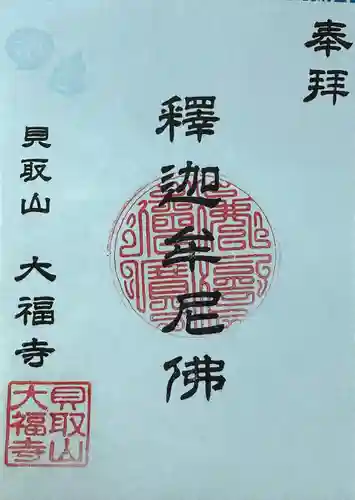 奉拜
釋迦牟尼佛
貝取山 大福寺
貝取山
大福寺